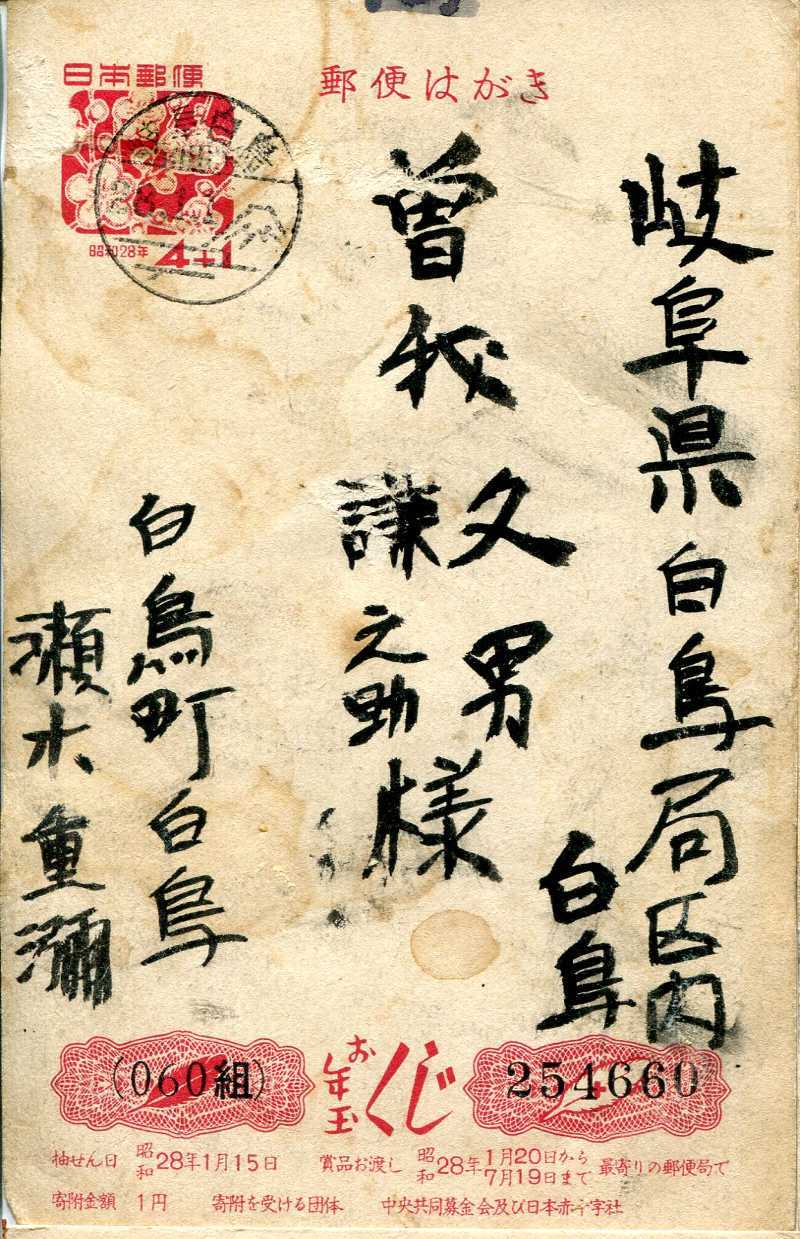 日本郵便
郵便はがき
昭和28年
4+1
岐阜県白鳥局区内
白鳥
曽我久男
謙之助
様
白鳥町白鳥
瀬木重彌
(060組)
お年玉くじ
254660
抽せん日 昭和28年1月15日 賞品お渡し 昭和28年1月20日から7月19日まで最寄りの郵便局で
寄附金額 1円 寄附を受ける団体 中央共同募金会及び日本赤十字社